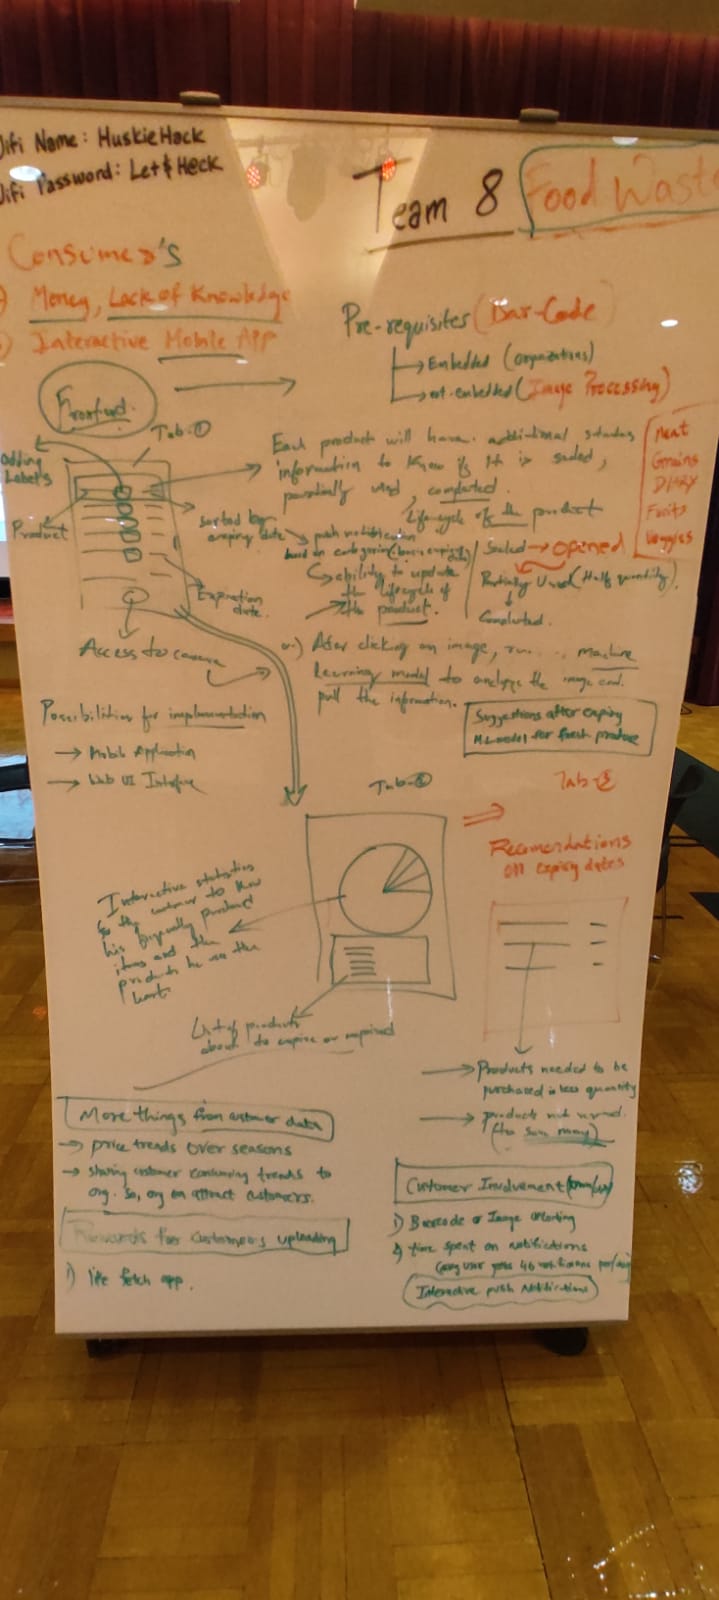 Wifi Name: HuskieHack
Wifi Password: Let$Hack
Team 8
Food Waste
Consumer's
Money, Lack of Knowledge
Interactive Mobile App
Pre-requisites (Bar-Code)
Embedded (organizations)
not-embedded (Image Processing)
Frontend
Tab-①
Adding Label's
Product
Sorted by expiry date
Expiration date
Access to camera
Each product will have additional status
information to know if it is sealed,
partially used, completed.
Lifecycle of the product
Meat
Grains
Dairy
Fruits
Veggies
push notification
based on categories (basic expiry date)
ability to update
the lifecycle of
the product.
Sealed → opened
Partially Used (Half quantity).
Completed.
After clicking an image, run machine
learning model to analyze the image and
pull the information.
Suggestions after expiry
ML model for fresh produce
Possibilities for implementation
→ Mobile Application
→ Web UI Interface
Tab-②
Interactive statistics
for the customer to know
his frequently purchased
items and the
products he use the
least
List of products
about to expire or expired
Tab-③
Recomendations
on expiry dates
→ Products needed to be
purchased in less quantity
→ products not
(to save money)
More things from customer data
→ price trends over seasons
→ sharing customer consuming trends to
org. So, org can attract customers.
Rewards for customers uploading
1) like fetch app.
Customer Involvement
1) Barcode or Image uploading
2) time spent on notifications
(any user gets 46 notifications per/day)
Interactive push Notifications